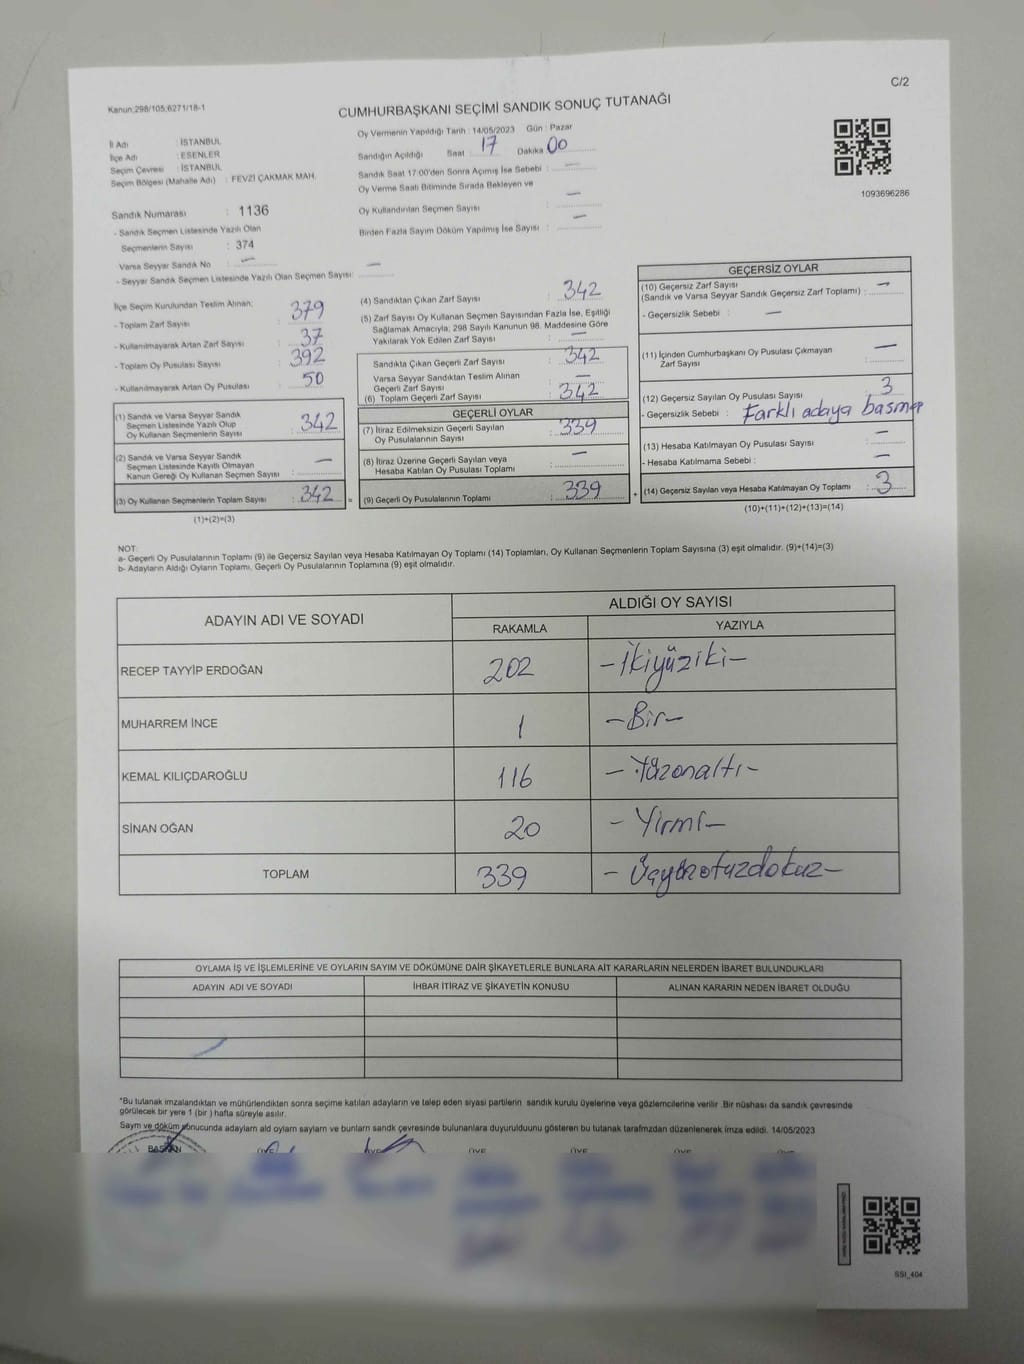 C/2
Kanun:298/105;6271/18-1
CUMHURBAŞKANI SEÇİMİ SANDIK SONUÇ TUTANAĞI
İl Adı : İSTANBUL
İlçe Adı : ESENLER
Seçim Çevresi : İSTANBUL
Seçim Bölgesi (Mahalle Adı) : FEVZİ ÇAKMAK MAH.
Sandık Numarası : 1136
- Sandık Seçmen Listesinde Yazılı Olan
Seçmenlerin Sayısı : 374
Varsa Seyyar Sandık No : —
- Seyyar Sandık Seçmen Listesinde Yazılı Olan Seçmen Sayısı: —
Oy Vermenin Yapıldığı Tarih : 14/05/2023 Gün : Pazar
Sandığın Açıldığı Saat : 17 Dakika 00
Sandık Saat 17:00'den Sonra Açımış İse Sebebi : —
Oy Verme Saati Bitiminde Sırada Bekleyen ve
Oy Kullandırılan Seçmen Sayısı : —
Birden Fazla Sayım Döküm Yapılmış İse Sayısı : —
1093696286
İlçe Seçim Kurulundan Teslim Alınan;
- Toplam Zarf Sayısı : 379
- Kullanılmayarak Artan Zarf Sayısı : 37
- Toplam Oy Pusulası Sayısı : 392
- Kullanılmayarak Artan Oy Pusulası : 50
(1) Sandık ve Varsa Seyyar Sandık
Seçmen Listesinde Yazılı Olup
Oy Kullanan Seçmenlerin Sayısı : 342
(2) Sandık ve Varsa Seyyar Sandık
Seçmen Listesinde Kayıtlı Olmayan
Kanun Gereği Oy Kullanan Seçmen Sayısı : —
(3) Oy Kullanan Seçmenlerin Toplam Sayısı : 342 =
(1)+(2)=(3)
(4) Sandıktan Çıkan Zarf Sayısı : 342
(5) Zarf Sayısı Oy Kullanan Seçmen Sayısından Fazla İse, Eşitliği
Sağlamak Amacıyla, 298 Sayılı Kanunun 98. Maddesine Göre
Yakılarak Yok Edilen Zarf Sayısı : —
Sandıkta Çıkan Geçerli Zarf Sayısı : 342
Varsa Seyyar Sandıktan Teslim Alınan
Geçerli Zarf Sayısı : —
(6) Toplam Geçerli Zarf Sayısı : 342
GEÇERLİ OYLAR
(7) İtiraz Edilmeksizin Geçerli Sayılan
Oy Pusulalarının Sayısı : 339
(8) İtiraz Üzerine Geçerli Sayılan veya
Hesaba Katılan Oy Pusulası Toplamı : —
(9) Geçerli Oy Pusulalarının Toplamı : 339 +
GEÇERSİZ OYLAR
(10) Geçersiz Zarf Sayısı
(Sandık ve Varsa Seyyar Sandık Geçersiz Zarf Toplamı) : —
- Geçersizlik Sebebi : —
(11) İçinden Cumhurbaşkanı Oy Pusulası Çıkmayan
Zarf Sayısı : —
(12) Geçersiz Sayılan Oy Pusulası Sayısı : 3
- Geçersizlik Sebebi : Farklı adaya
(13) Hesaba Katılmayan Oy Pusulası Sayısı : —
- Hesaba Katılmama Sebebi : —
(14) Geçersiz Sayılan veya Hesaba Katılmayan Oy Toplamı : 3
(10)+(11)+(12)+(13)=(14)
NOT:
a- Geçerli Oy Pusulalarının Toplamı (9) ile Geçersiz Sayılan veya Hesaba Katılmayan Oy Toplamı (14) Toplamları, Oy Kullanan Seçmenlerin Toplam Sayısına (3) eşit olmalıdır. (9)+(14)=(3)
b- Adayların Aldığı Oyların Toplamı, Geçerli Oy Pusulalarının Toplamına (9) eşit olmalıdır.
ADAYIN ADI VE SOYADI
ALDIĞI OY SAYISI
RAKAMLA YAZIYLA
RECEP TAYYİP ERDOĞAN 202 -İkiyüziki-
MUHARREM İNCE 1 -Bir-
KEMAL KILIÇDAROĞLU 116 -Yüzonaltı-
SİNAN OĞAN 20 -Yirmi-
TOPLAM 339 -Üçyüzotuzdokuz-
OYLAMA İŞ VE İŞLEMLERİNE VE OYLARIN SAYIM VE DÖKÜMÜNE DAİR ŞİKAYETLERLE BUNLARA AİT KARARLARIN NELERDEN İBARET BULUNDUKLARI
ADAYIN ADI VE SOYADI İHBAR İTİRAZ VE ŞİKAYETİN KONUSU ALINAN KARARIN NEDEN İBARET OLDUĞU
*Bu tutanak imzalandıktan ve mühürlendikten sonra seçime katılan adayların ve talep eden siyasi partilerin sandık kurulu üyelerine veya gözlemcilerine verilir .Bir nüshası da sandık çevresinde
görülecek bir yere 1 (bir ) hafta süreyle asılır.
Sayım ve döküm sonucunda adayların ald oyların sayların ve bunların sandk çevresinde bulunanlara duyurulduunu gösteren bu tutanak tarafmzdan düzenlenerek imza edildi. 14/05/2023
BAŞKAN ÜYE ÜYE ÜYE ÜYE ÜYE ÜYE
SSI_404